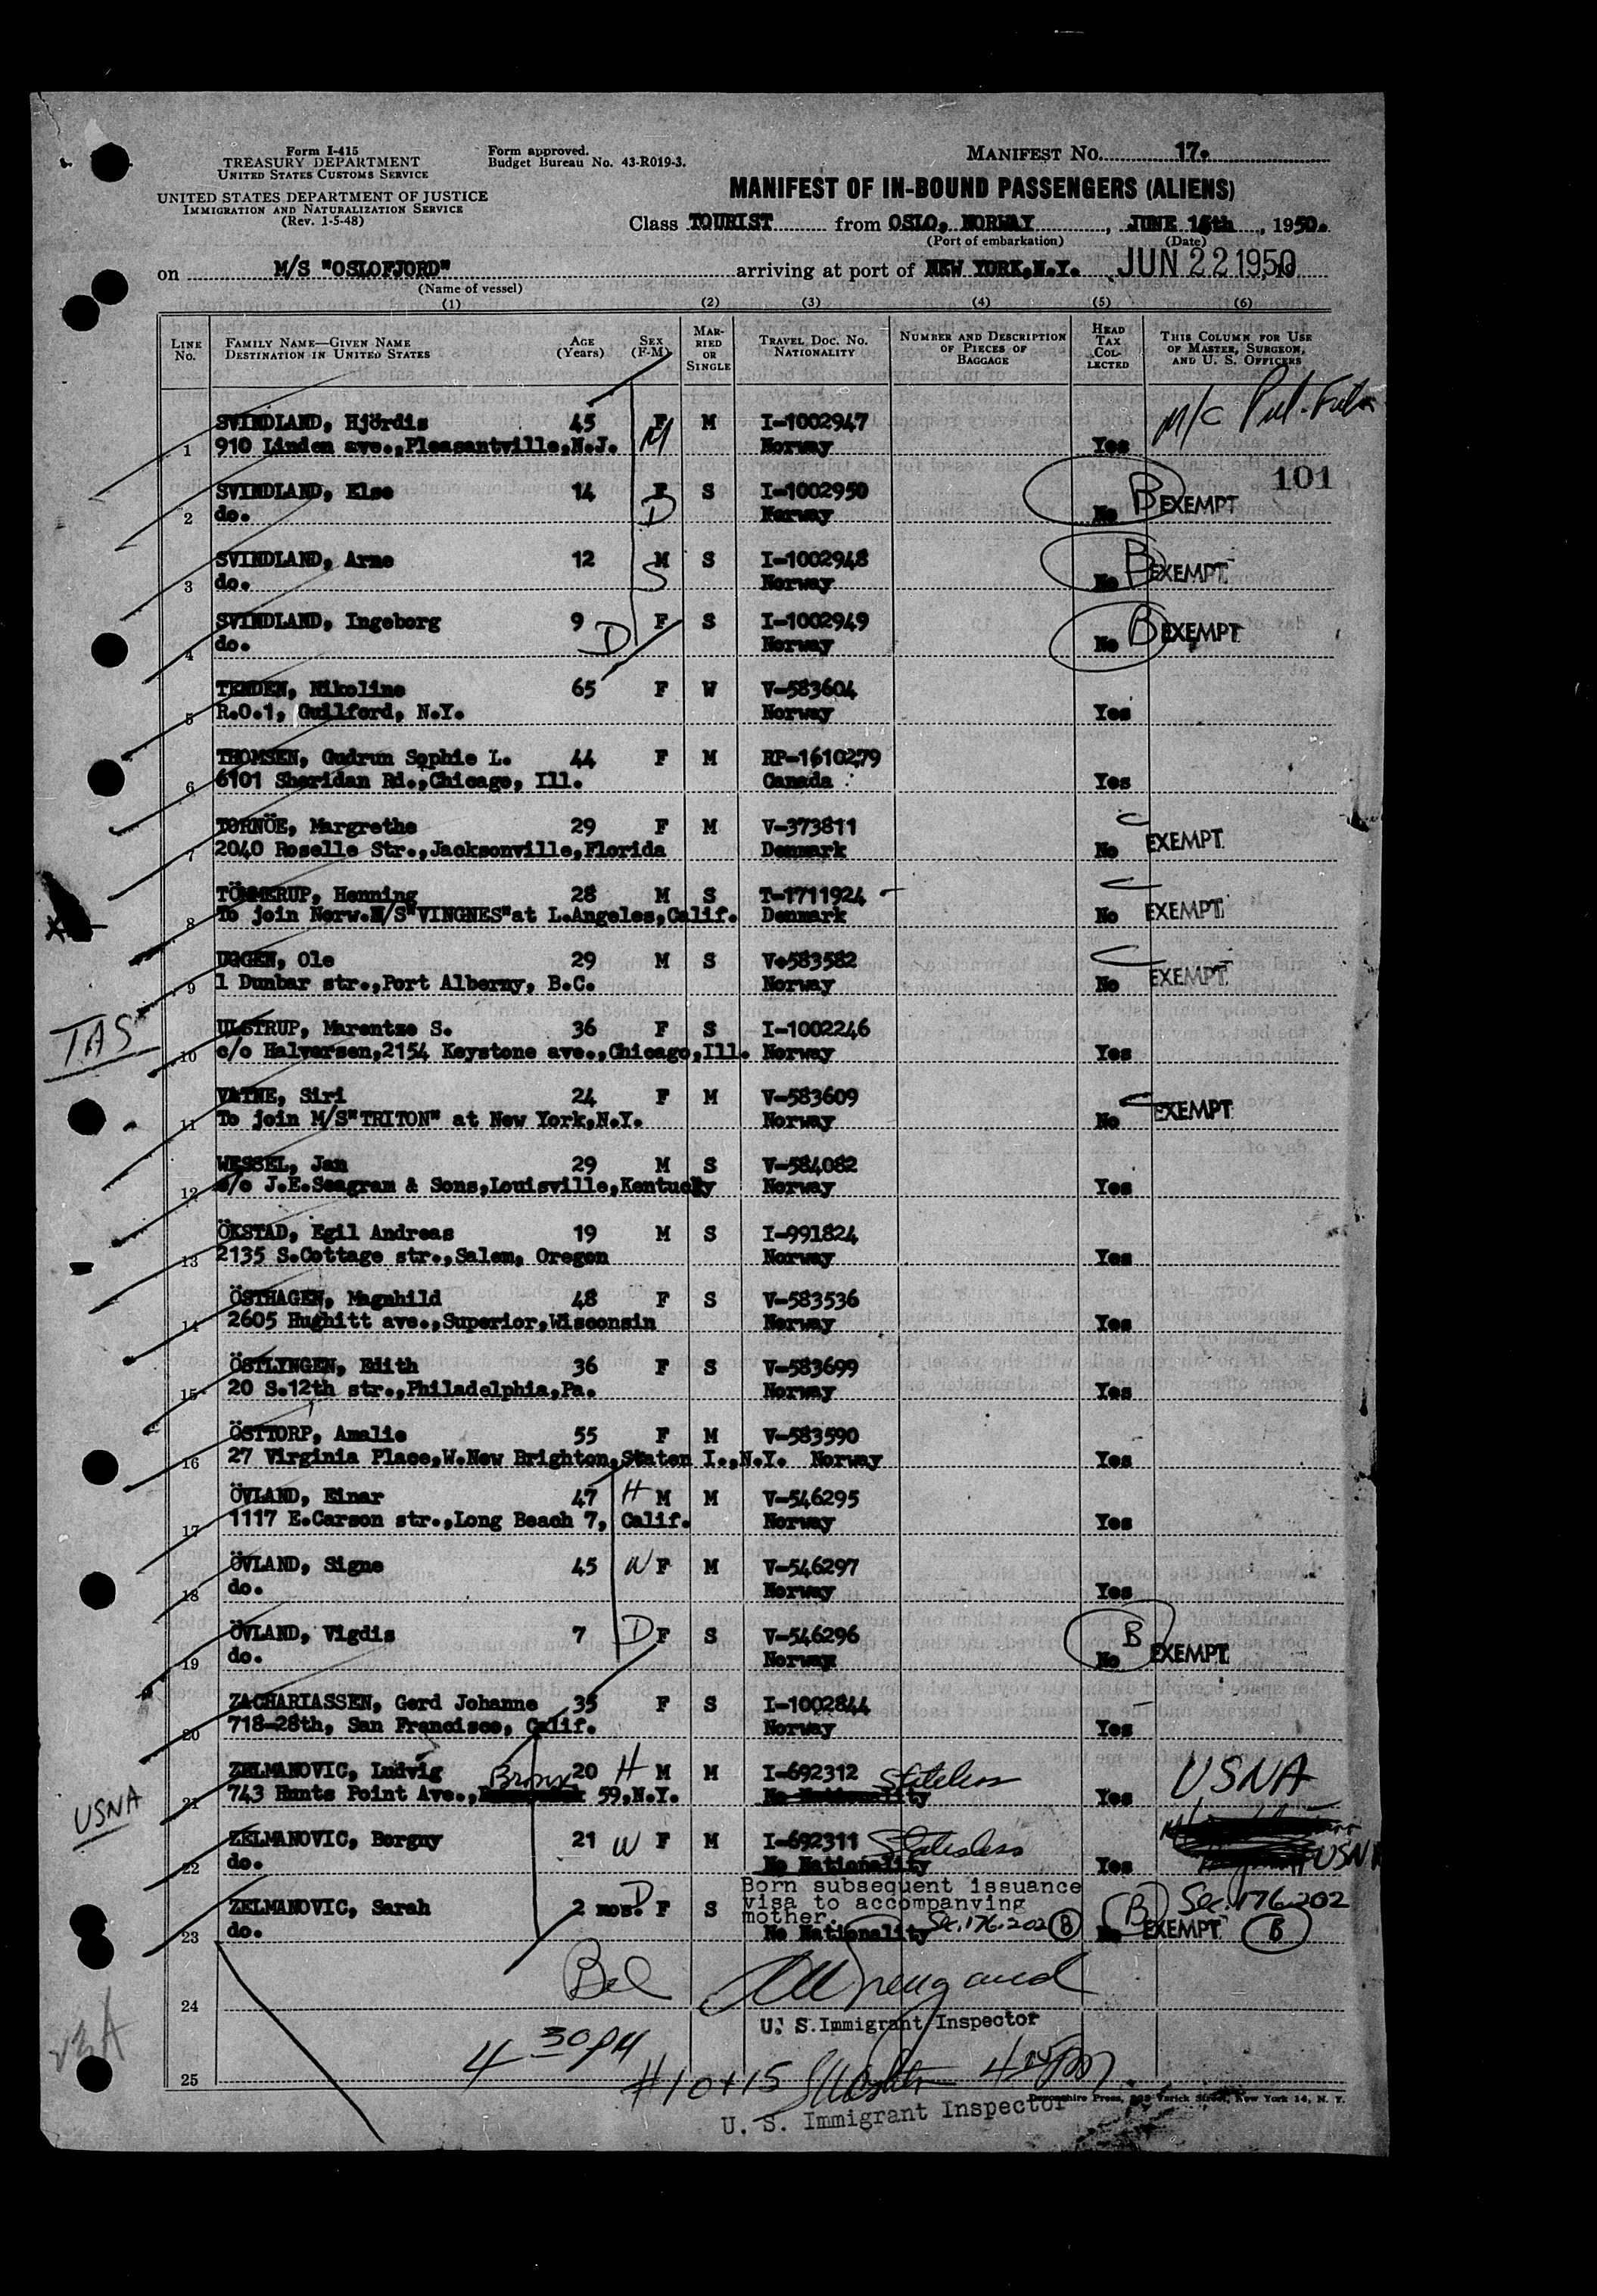 Form I-415
TREASURY DEPARTMENT
UNITED STATES CUSTOMS SERVICE
UNITED STATES DEPARTMENT OF JUSTICE
IMMIGRATION AND NATURALIZATION SERVICE
(Rev. 1-5-48)
Form approved.
Budget Bureau No. 43-R019-3.
MANIFEST No. 17.
MANIFEST OF IN-BOUND PASSENGERS (ALIENS)
Class TOURIST from OSLO, NORWAY, JUNE th, 1950.
(Port of embarkation) (Date)
on M/S "OSLOFJORD" arriving at port of NEW YORK, N.Y. JUN 22 1950
(Name of vessel)
(1) (2) (3) (4) (5) (6)
LINE No. FAMILY NAME—GIVEN NAME DESTINATION IN UNITED STATES AGE (Years) SEX (F-M) MARRIED OR SINGLE TRAVEL DOC. NO. NATIONALITY NUMBER AND DESCRIPTION OF PIECES OF BAGGAGE HEAD TAX COLLECTED THIS COLUMN FOR USE OF MASTER, SURGEON, AND U. S. OFFICERS
SVINDLAND, Hjördis 45 F M I-1002947 M/C
1 910 Linden ave.,Pleasantville,N.J. M Norway Yes
101
SVINDLAND, Else 14 F S I-1002950 B EXEMPT
2 do. D Norway No
SVINDLAND, Arne 12 M S I-1002948 B EXEMPT
3 do. S Norway No
SVINDLAND, Ingeborg 9 F S I-1002949 B EXEMPT
4 do. D Norway No
TENDEN, Nikoline 65 F W V-583604
5 R.O.1, Guilford, N.Y. Norway Yes
THOMSEN, Gudrun Sophie L. 44 F M RP-1610279
6 6101 Sheridan Rd.,Chicago, Ill. Canada Yes
TORNÖE, Margrethe 29 F M V-373811 C EXEMPT
7 2040 Roselle Str.,Jacksonville,Florida Denmark No
TÖMMERUP, Henning 28 M S T-1711924 C EXEMPT
8 To join Norw.M/S"VINGNES"at L.Angeles,Calif. Denmark No
UGGEN, Ole 29 M S V-583582 C EXEMPT
9 1 Dunbar str.,Port Alberny, B.C. Norway No
TAS
ULSTRUP, Marentse S. 36 F S I-1002246
10 c/o Halvorsen,2154 Keystone ave.,Chicago,Ill. Norway Yes
VATNE, Siri 24 F M V-583609 C EXEMPT
11 To join M/S"TRITON" at New York,N.Y. Norway No
WESSEL, Jan 29 M S V-584082
12 c/o J.E.Seagram & Sons,Louisville,Kentucky Norway Yes
ÖKSTAD, Egil Andreas 19 M S I-991824
13 2135 S.Cottage str.,Salem, Oregon Norway Yes
ÖSTHAGEN, Magnhild 48 F S V-583536
14 2605 Hughitt ave.,Superior,Wisconsin Norway Yes
ÖSTLYNGEN, Edith 36 F S V-583699
15 20 S.12th str.,Philadelphia,Pa. Norway Yes
ÖSTTORP, Amalie 55 F M V-583590
16 27 Virginia Place,W.New Brighton,Staten I.,N.Y. Norway Yes
ÖVLAND, Einar 47 H M M V-546295
17 1117 E.Carson str.,Long Beach 7, Calif. Norway Yes
ÖVLAND, Signe 45 W F M V-546297
18 do. Norway Yes
ÖVLAND, Vigdis 7 D F S V-546296 B EXEMPT
19 do. Norway No
ZACHARIASSEN, Gerd Johanne 35 F S I-1002844
20 718-28th, San Francisco, Calif. Norway Yes
ZELMANOVIC, Ludvig 20 H M M I-692312 Stateless USNA
21 743 Hunts Point Ave., Bronx 59,N.Y. No Nationality Yes
USNA
ZELMANOVIC, Borgny 21 W F M I-692311 Stateless
22 do. No Nationality Yes USNA
Born subsequent issuance
visa to accompanying
mother.
ZELMANOVIC, Sarah 2 mos. D F S Sec. 176.202 B B Sec. 176.202
23 do. No Nationality No EXEMPT B
24
U. S. Immigrant Inspector
4 30 PM
25 #10+15
Devonshire Press, Varick Street, New York 14, N. Y.
U. S. Immigrant Inspector